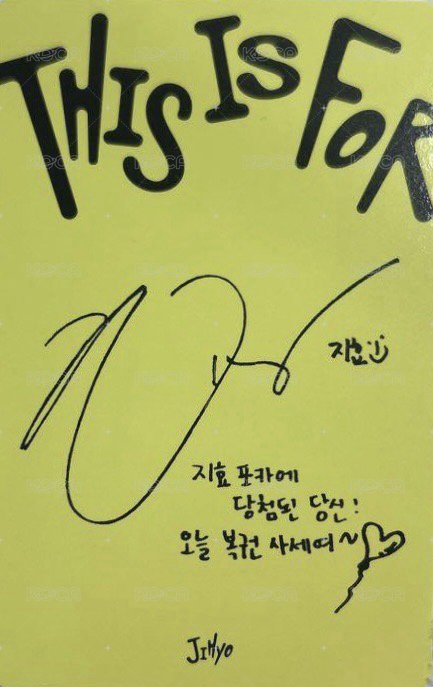 THIS IS FOR
지효
지효 포카에
당첨된 당신!
오늘 복권 사세여~
JIHYO